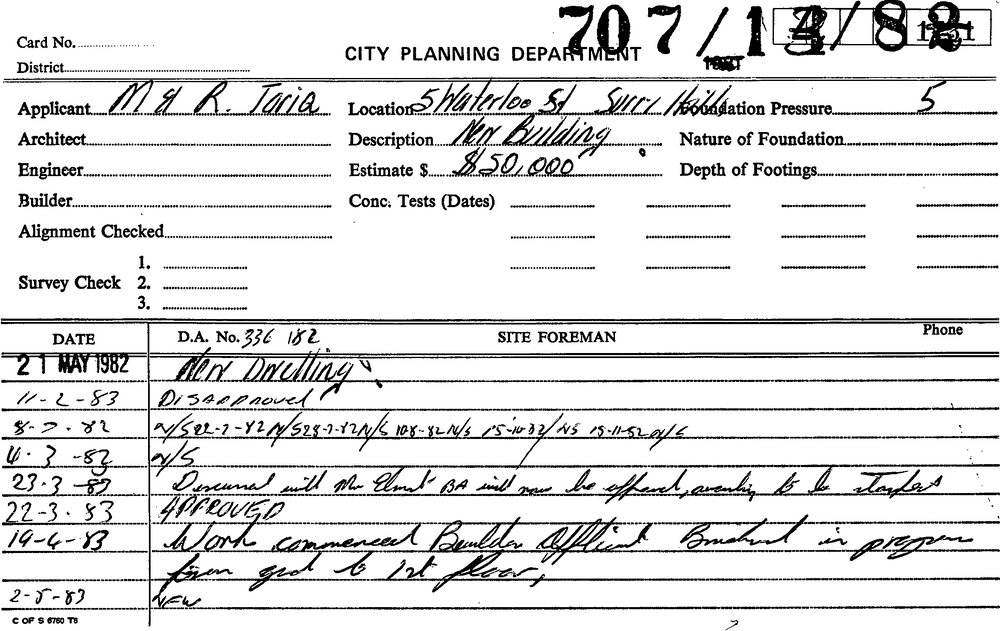 707/13/82
Card No.
CITY PLANNING DEPARTMENT
District
Applicant M & R. Taria Location 5 Waterloo St Surry Hills Foundation Pressure 5
Architect Description New Building Nature of Foundation
Engineer Estimate $ $50,000 Depth of Footings
Builder Conc. Tests (Dates)
Alignment Checked
1.
Survey Check 2.
3.
DATE D.A. No. 336 182 SITE FOREMAN Phone
21 MAY 1982 New Dwelling
11-2-83 DISAPPROVED
8-7-82 N/S 22-7-82 N/S 28-7-82 N/S 10-8-82 N/S 15-10-82 / NS 15-11-82 N/S
4.3-82 N/S
23.3-83 Discussed with Mr BA will now be approved, awaiting to be stamped
22-3.83 APPROVED
19-4-83 Work commenced Builder Brickwork in progress
from grd to 1st floor,
2-5-83
C OF S 6760 T6